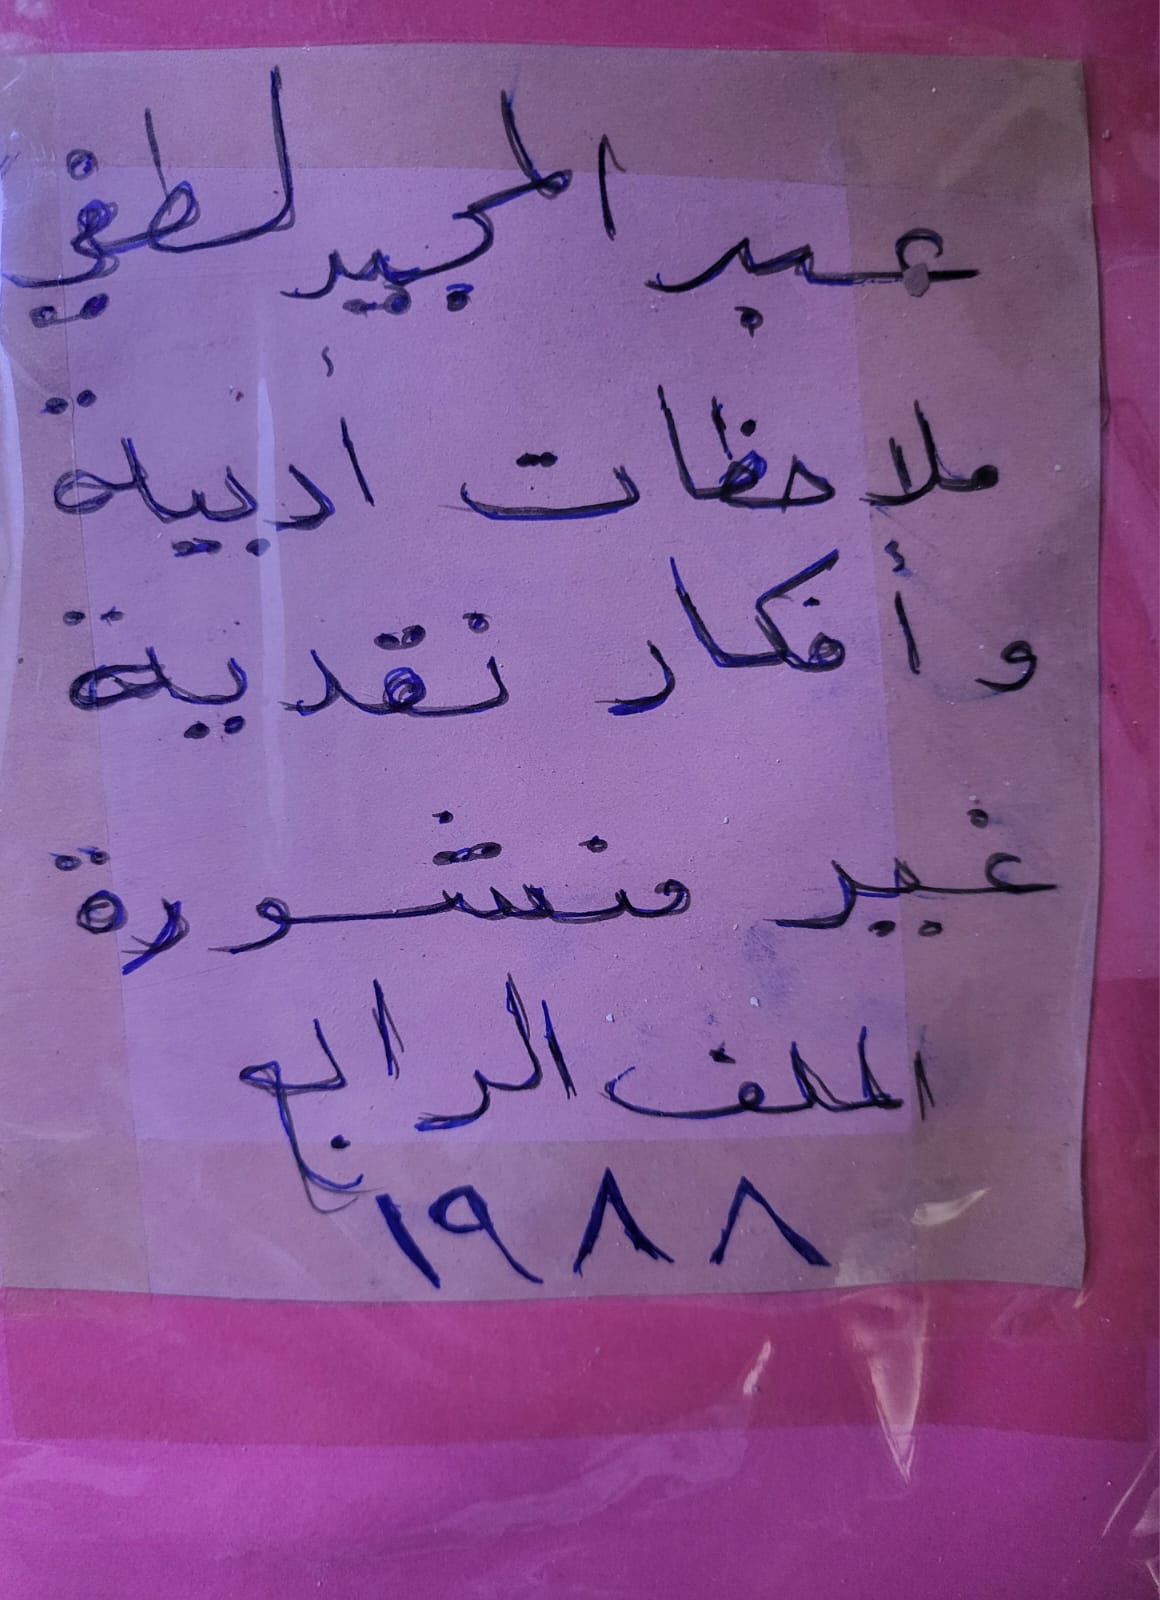 عبد المجيد لطفي
ملاحظات أدبية
و أفكار نقدية
غير منشورة
الملف الرابع
١٩٨٨